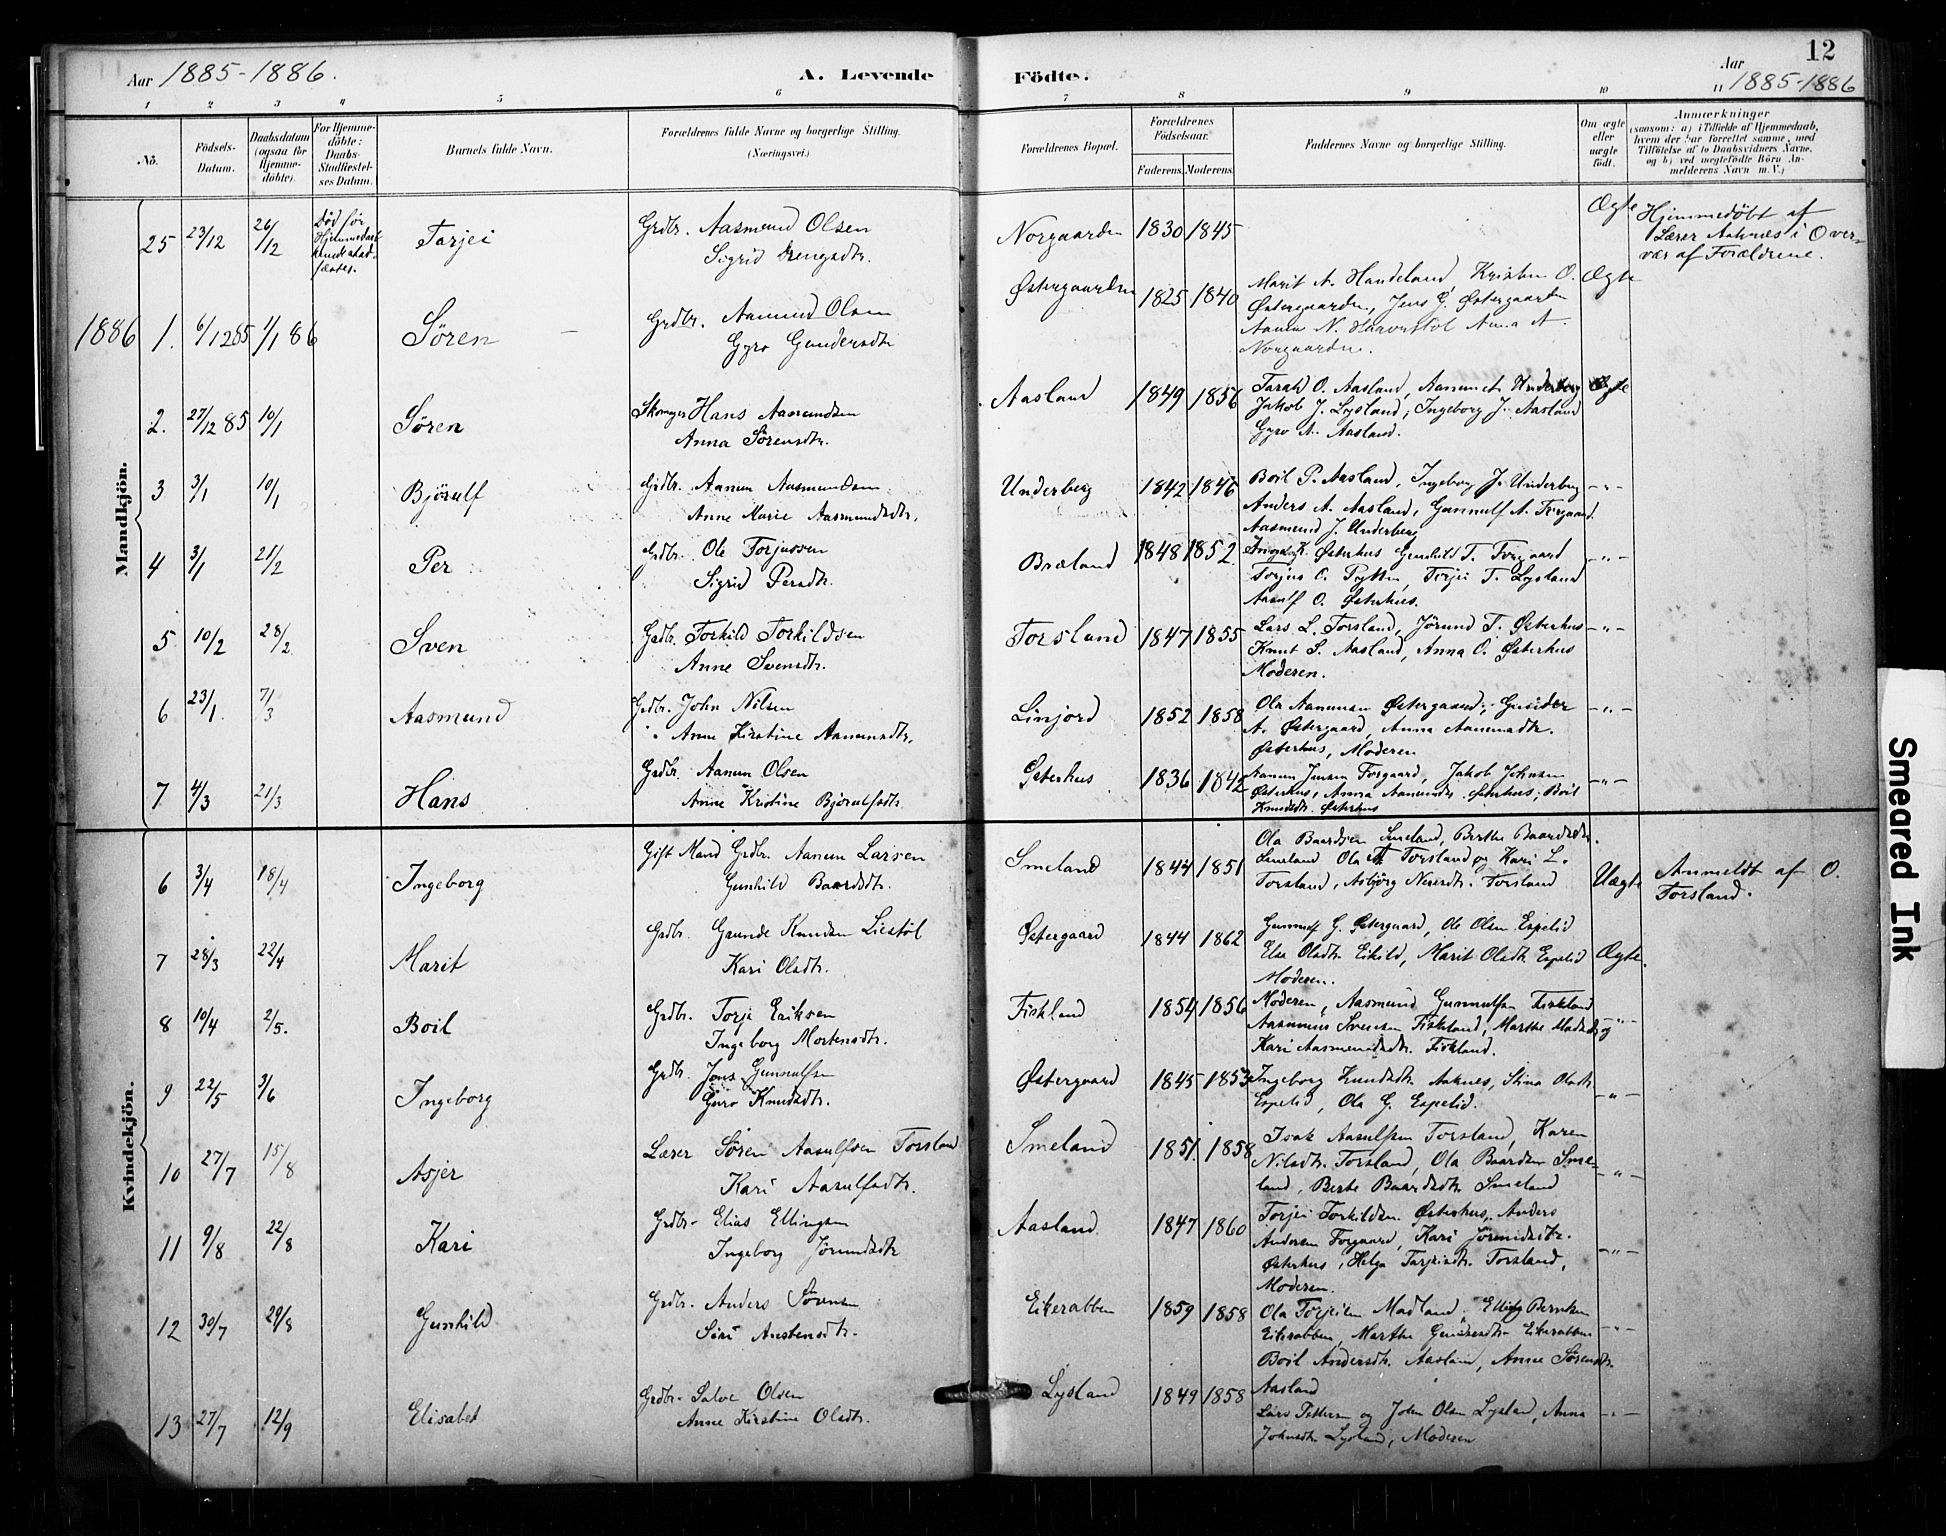 Aar 1885-1886.
A. Levende
Födte.
12
Aar
1885-1886
1 2 3 4 5 6 7 8 9 10 11
No.
Födsels-
Datum.
Daabsdatum
(ogsaa for
Hjemme-
döbte).
For Hjemme-
döbte:
Daabs-
Stadfæstel-
ses Datum.
Barnets fulde Navn.
Forældrenes fulde Navne og borgerlige Stilling.
(Næringsvei.)
Forældrenes Bopæl.
Forældrenes
Födselsaar.
Faderens. Moderens.
Faddernes Navne og borgerlige Stilling.
Om ægte
eller
uægte
født.
Anmærkninger
(saasom: a) i Tilfælde af Hjemmedaab,
hvem der har forrettet samme, med
Tilføielse af to Daabsvidners Navne,
og b) ved uegtefödte Börn An-
melderens Navn m.V.)
Mandkjön.
25 23/12 26/12 Död før Hjemmedaab kunde stadfæstes. Tarjei Grdbr. Aasmund Olsen
Sigrid Drengsdtr.
Norgaarden 1830 1845 Ægte Hjemmedøbt af
Lærer Aaknes i Over-
vær af Forældrene.
1886 1. 6/12 85 1/1 86 Sören Grdbr. Aamund Olsen
Gyro Gundersdtr
Østergaarden 1825 1840 Marit A. Handeland, Kristen O. Ægte
Østergaarden, Jens G. Østergaarden
N. Anna A.
Norgaarden.
2. 27/12 85 10/1 Sören Hans Aamundsen
Anna Sörensdtr.
Aasland 1849 1856 Tarald O. Aasland, Underberg Ægte
Jakob J. Lysland, Ingeborg J. Aasland
Gyro A. Aasland.
3 3/1 10/1 Björulf Grdbr. Aanun Aasmundsen
Anne Marie Aasmundsdtr.
Underberg 1842 1846 Boil P. Aasland, Ingeborg J. Underberg -"-
Anders A. Aasland, Gunnulf A. Forgaard.
Aasmund J. Underberg
4 3/1 21/2 Per Grdbr. Ole Torjussen
Sigrid Persdtr.
Bræland 1848 1852. K. Østerhus Gunhild T. Forgaard -"-
Torjus O. Torjei T. Lysland
Aasulf O. Østerhus.
5 10/2 28/2 Sven Grdbr. Torkild Torkildsen
Anne Svensdtr.
Torsland 1847 1855 Lars L. Torsland, Jörund T. Østerhus -"-
Knut S. Aasland, Anna O. Østerhus
Moderen.
6 23/1. 7/3 Aasmund Grdbr. John Nilsen
Anne Kirstine Aanensdtr.
Linjord 1852 1858 Ola Aanunsen Østergaard, Gunder -"-
A. Østergaard, Anna Aanensdtr.
Østerhus, Moderen
7 4/3 21/3 Hans Grdbr. Aanun Olsen
Anne Kristine Björulfsdtr.
Østerhus 1836 1842 Aanun Jensen Forgaard, Jakob Johnsen -"-
Østerhus, Anna Aanunsdtr. Østerhus, Boil
Knudsdtr. Østerhus
Kvindekjön.
6 3/4 18/4 Ingeborg Gift Mand Grdbr. Aanun Larsen
Gunhild Baardsdtr.
Smeland 1844 1851 Ola Baardsen Smeland, Berthe Baardsdtr.
Smeland Ola Torsland og Kari L.
Torsland, Asbjörg Torsland Uægte Anmeldt af O.
Torsland.
7 28/3 22/4 Marit Grdbr. Gunde Knudsen Liestöl
Kari Olsdtr.
Østergaard 1844 1862 Gunnulf G. Østergaard, Ole Olsen Espelid
Else Olsdtr. Eikild, Marit Olsdtr. Espelid Ægte.
Moderen.
8 10/4 2/5. Boil Grdbr. Torje Eriksen
Ingeborg Mortensdtr.
Fiskland 1854 1856 Moderen, Aasmund Gunnulfsen Fiskland
Svensen Fiskland, Marthe og -"-
Kari Aasmundsdtr. Fiskland.
9 22/5 3/6 Ingeborg Grdbr. Jens Gunnulfsen
Guro Knudsdtr.
Østergaard 1845 1853 Ingeborg Knudsdtr. Aaknes, Stina Olsdtr.
Espelid, Ola G. Espelid. -"-
10 27/7 15/8 Asjer Lærer Sören Aasulfsen Torsland
Kari Aasulfsdtr.
Smeland 1851. 1858 Isak Aasulfsen Torsland, Karen
Nilsdtr. Torsland, Ola Baardsen Sme-
land, Berte Baardsdtr. Smeland -"-
11 9/8 22/8 Kari Grdbr. Elias Ellingsen
Ingeborg Jörundsdtr
Aasland 1847 1860 Torjei Torkildsen Østerhus, Anders
Andersen Forgaard, Kari Jörundsdtr.
Østerhus, Helga Tarjeisdtr. Torsland, -"-
Moderen.
12 30/7 29/8 Gunhild Grdbr. Anders Sörensen
Siri Austensdtr.
Eikerabben 1859 1858 Ola Torjeisen Madland, Elling Berntsen
Eikerabben, Marthe Eikerabben -"-
Boil Andersdtr. Aasland, Anne Sörensdtr.
Aasland
13 27/7 12/9 Elisabet Grdbr. Salve Olsen
Anne Kirstine Olsdtr.
Lysland 1849 1858 Lars Pettersen og John Olsen Lysland, Anna -"-
Johnsdtr. Lysland, Moderen
Smeared Ink